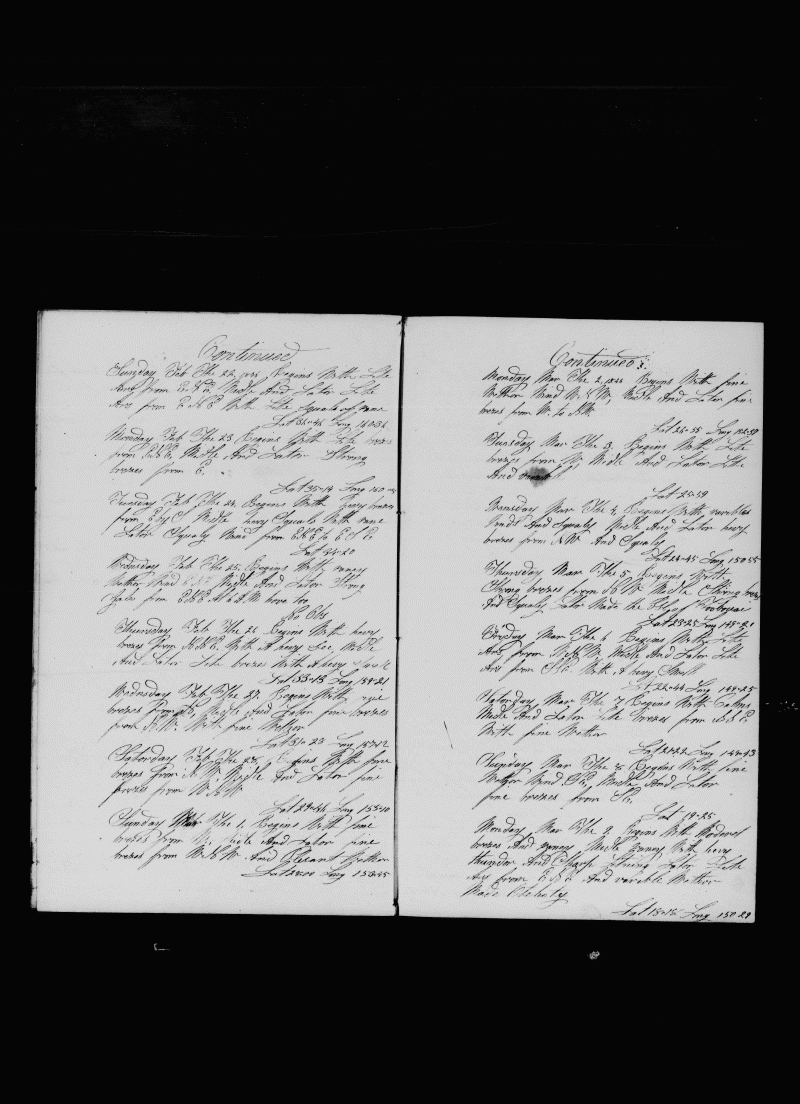 Continued
Sunday Feb The 22, Begins With Lite
Airs from E.N.E. Midle And Lator Lite
Airs from E.N.E With Lite Squals of rane
Lat 36-46 Long 160-36
Monday Feb The 23 Begins With Lite breses
from E.N.E, Midle And Lator Strong
breses from E.
Lat 35-14 Long 160
Tuesday Feb The 24, Begins With hevy breses
from E by S Midle hevy Squals With rane
Lator Squaly Wind from E.N.E to E.S.E.
Lat 34-20
Wednesday Feb The 25, Begins With raney
Wether Wind Midle And Lator Strong
Gale from E.N.E At 10 A.M hove too
No Obs
Thursday Feb The 26 Begins With hevy
breses from N.N.E. With A hevy Sea, Midle
And Lator Lite breses With A hevy Swell
Lat 33-13 Long 159-21
Wednesday Feb The 27, Begins With
breses from Midle And Lator fine breses
from N.W. With fine Wether
Lat 31-23 Long 157-12
Saturday Feb The 28, Begins With fine
breses from N.W. Midle And Lator fine
breses from W.N.W
Lat 29-36 Long 155-10
Sunday Mar The 1, Begins With fine
breses from Midle And Lator fine
breses from W.N.W. And Plesant Wether
Lat 28-00 Long 153-45
Continued
Monday Mar The 2, Begins With fine
Wether Wind W.N.W, Midle And Lator fine
breses from W. to N.W.
Lat 26-55 Long 152-59
Tuesday Mar The 3, Begins With Lite
breses from W, Midle And Lator Lite
And
Lat 25-59
Wensday Mar The 4, Begins With, varables
Winds And Squaly Midle And Lator hevy
breses from N.W. And Squaly
Lat 24-45 Long 150-55
Thursday Mar The 5, Begins With
Strong breses from N.W. Midle Strong breses
And Squaly Lator Made the Isl of
Lat 23-25 Long 149-20
Friday Mar The 6 Begins With Lite
Airs from W.N.W. Midle And Lator Lite
Airs from S.E. With A hevy Swell
Lat 22-44 Long 149-25
Saturday Mar The 7 Begins With Calms
Midle And Lator Lite breses from S.S.E
With fine Wether
Lat 21-22 Long 149-43
Sunday Mar The 8 Begins With fine
Wether Wind S.E, Midle And Lator
fine breses from S.E.
Lat 19-25
Monday Mar The 9, Begins With Modored
breses And raney, Midle Raney With hevy
thunder And Sharp Litning Lator Lite
Airs from E.S.E And varable Wether
Made
Lat 18-16 Long 150-29